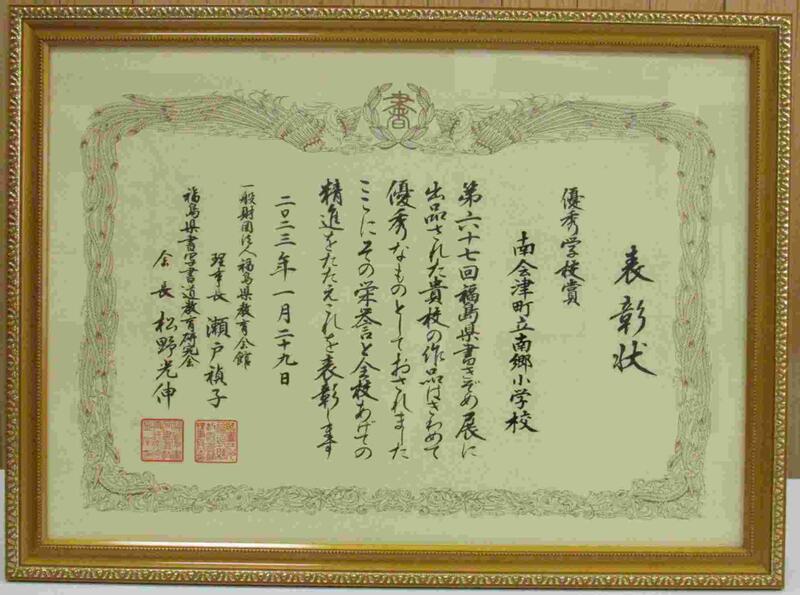 書
表彰状
優秀学校賞
南会津町立南郷小学校
第六十七回福島県書きぞめ展に
出品された貴校の作品はきわめて
優秀なものとしておされました
ここにその栄誉と全校あげての
精進をたたえこれを表彰します
二〇二三年一月二十九日
一般財団法人福島県教育会館
理事長 瀬戸禎子
福島県書写書道教育研究会
会長 松野光伸